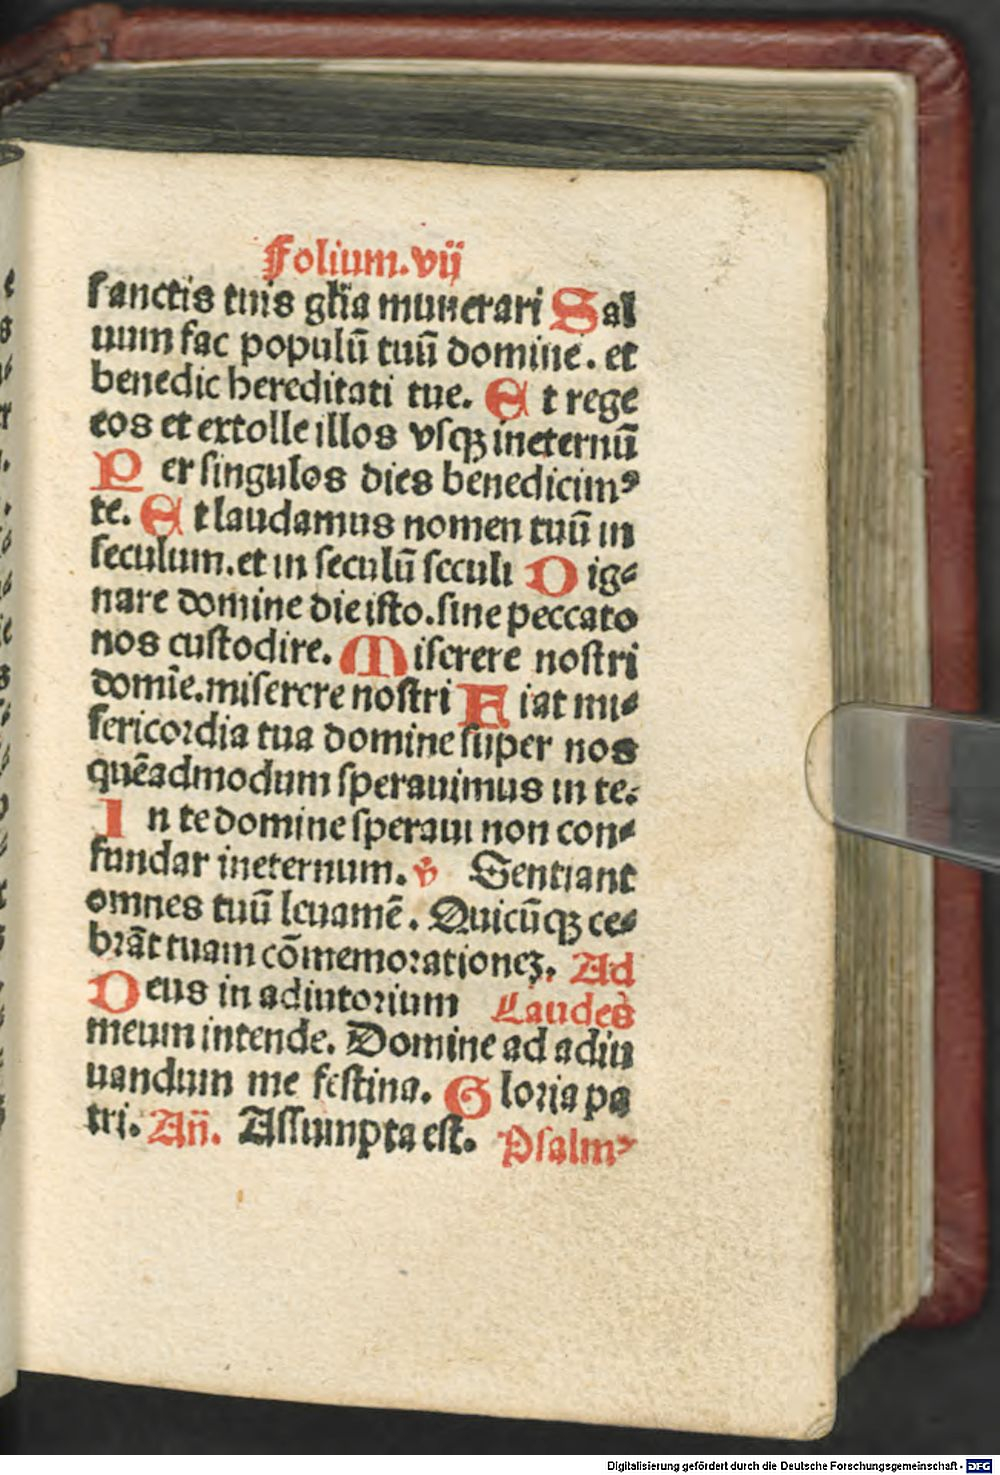 Folium.vij
sanctis tuis gl̄ia munerari Sal
uum fac populū tuū domine. et
benedic hereditati tue. Et rege
eos et extolle illos vsqꝫ ineternū
Per singulos dies benedicimꝰ
te. Et laudamus nomen tuū in
seculum. et in seculū seculi Dig⸗
nare domine die isto. sine peccato
nos custodire. Miserere nostri
domīe. miserere nostri Fiat mi⸗
sericordia tua domine super nos
quēadmodum sperauimus in te.
In te domine speraui non con⸗
fundar ineternum. v̄ Sentiant
omnes tuū leuamē. Quicūqꝫ ce⸗
brāt tuam cōmemorationeꝫ. Ad
Deus in adiutorium Laudes
meum intende. Domine ad adiu
uandum me festina. Gloria pa
tri. An̄. Assumpta est. Psalmꝰ
Digitalisierung gefördert durch die Deutsche Forschungsgemeinschaft - DFG